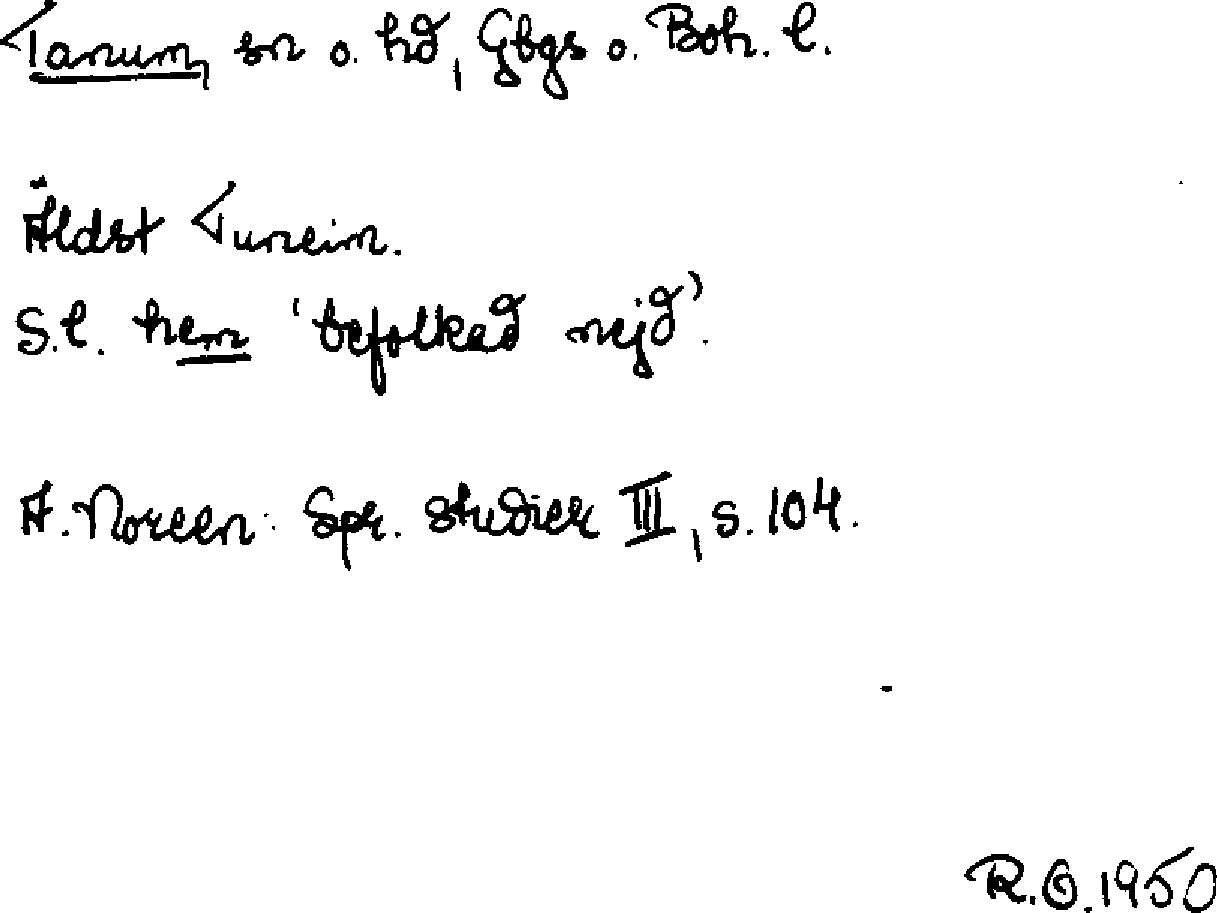 Tanum, sn o. hd, Gbgs o. Boh. l.
Äldst Tuneim.
S.l. hem 'befolkad nejd'.
A. Noreen: Spr. studier III, s. 104.
R.O. 1950